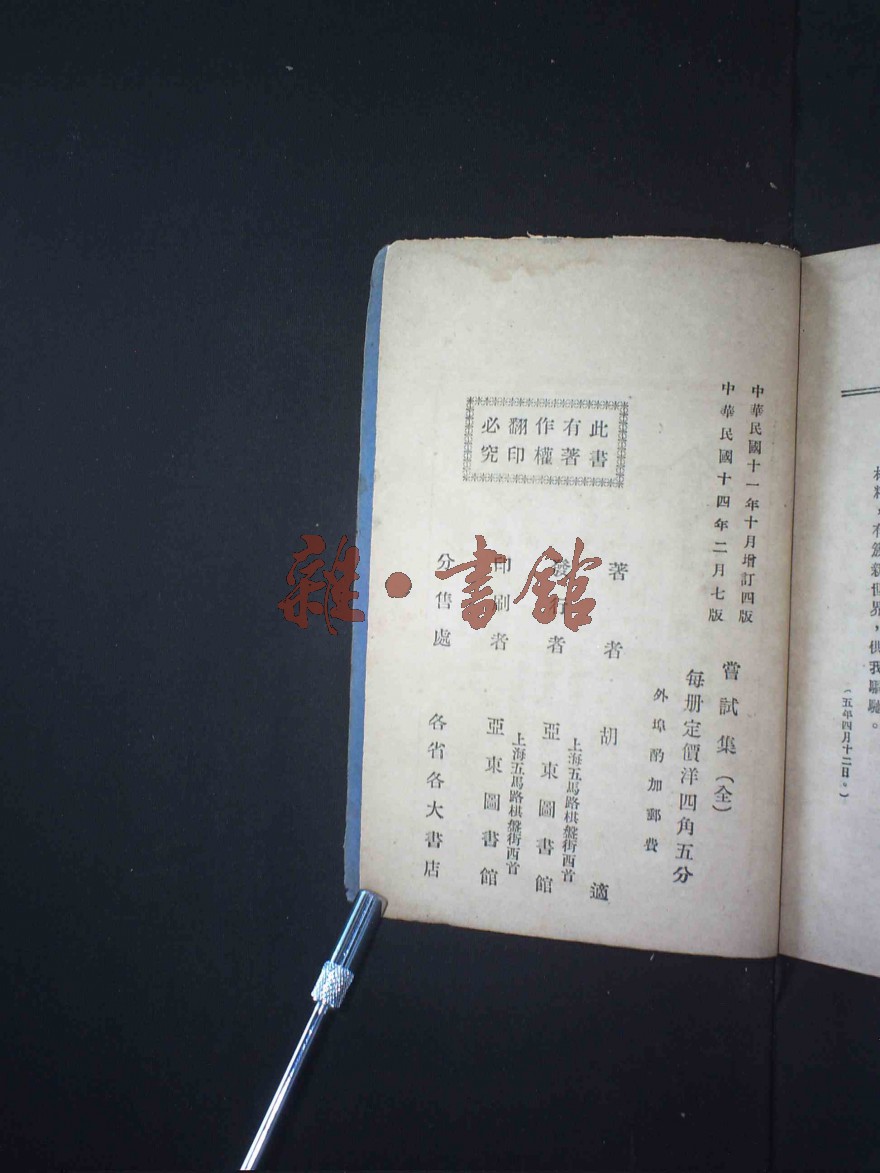 林料，有箴親但界，供我驅馳。
（五年四月十二日。）
中華民國十一年十月增訂四版
中華民國十四年二月七版
嘗試集（全）
每册定價洋四角五分
外埠酌加郵費
此書有著作權翻印必究
著者 胡適
發行者 上海五馬路棋盤街西首 亞東圖書館
印刷者 上海五馬路棋盤街西首 亞東圖書館
分售處 各省各大書店
雜·書館